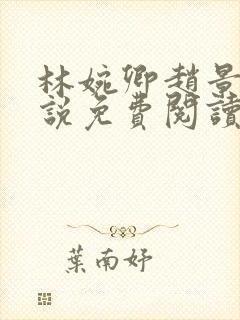 林婉卿趙景
說免費閱讀
葉南妤